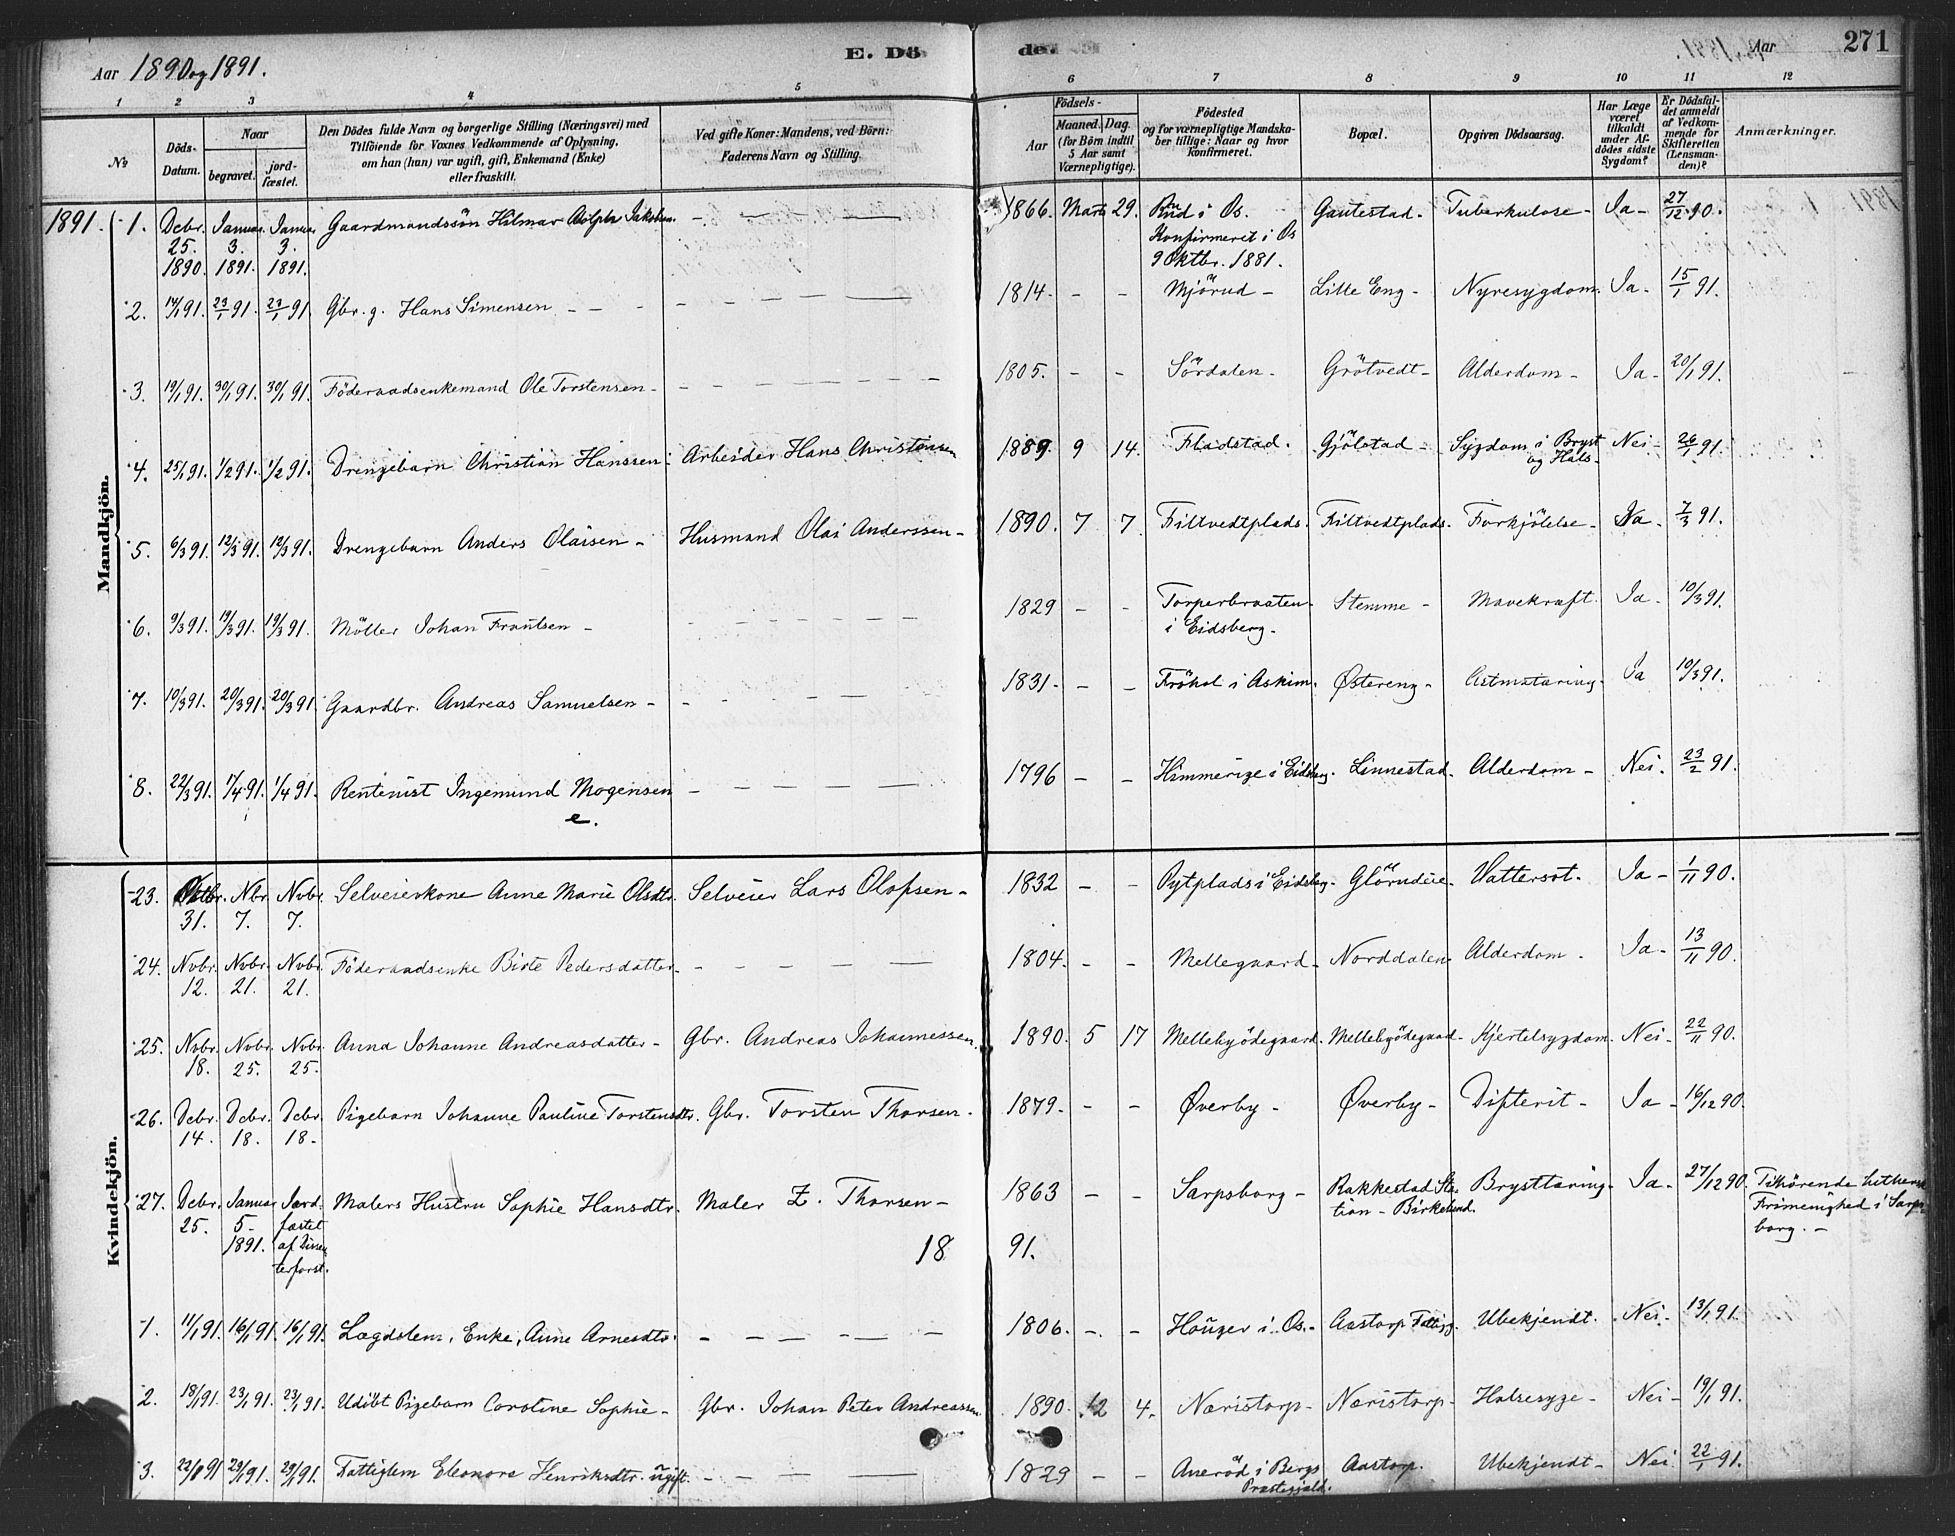 Aar 1890 og 1891.
E. Dö
de.
Aar
271
1 2 3 4 5 6 7 8 9 10 11 12
№
Döds-
Datum.
Naar
begravet.
jord-
fæstet.
Den Dödes fulde Navn og borgerlige Stilling (Næringsvei) med
Tilföiende for Voxnes Vedkommende af Oplysning,
om han (hun) var ugift, gift, Enkemand (Enke)
eller fraskilt.
Ved gifte Koner: Mandens, ved Börn:
Faderens Navn og Stilling.
Födsels-
Aar
Maaned. Dag.
(for Börn indtil
5 Aar samt
Værnepligtige).
Födested
og for værnepligtige Mandska-
ber tillige: Naar og hvor
konfirmeret.
Bopæl.
Opgiven Dödsaarsag.
Har Læge
været
tilkaldt
under Af-
dödes sidste
Sygdom?
Er Dödsfal-
det anmeldt
af Vedkom-
mende for
Skifteretten
(Lensman-
den)?
Anmærkninger.
Mandkjön.
1891. 1. Decbr. Januar. Januar. Gaardmandssön Hilmar Adolph Jakobsen. 1866. Marts 29. Rud i Os. Gautestad. Tuberkulose - Ja - 27/12 90.
25. 3. 3. Konfirmeret i Os
1890. 1891. 1891. 9 Oktbr. 1881.
2. 14/1 91. 23/1 91. 23/1 91. Gbr. g. Hans Simensen - - 1814. - - Mjörud - Lille Eng - Nyresygdom. Ja - 15/1 91.
3. 19/1 91. 30/1 91. 30/1 91. Föderaadsenkemand Ole Torstensen - 1805. - - Sördalen - Grötvedt - Alderdom - Ja - 20/1 91.
4. 25/1 91. 1/2 91. 1/2 91. Drengebarn Christian Hanssen. Arbeider Hans Christensen 1889. 9 14. Fladstad. Gjölstad - Sygdom i Bryst Nei - 26/1 91.
og Hals -
5. 6/3 91. 12/3 91. 12/3 91. Drengebarn Anders Olaisen - Husmand Olai Anderssen - 1890. 7 7. Filtvedtplads. Filtvedtplads. Forkjölelse - Ja - 7/3 91.
6. 9/3 91. 19/3 91. 19/3 91. Möller Johan Frantsen - 1829 - - Torperbraaten - Stemme - Mavekræft. Ja - 10/3 91.
i Eidsberg -
7. 10/3 91. 20/3 91. 20/3 91. Gaardbr. Andreas Samuelsen - 1831 - - - Frökol i Askim. Østereng - Astmatæring. Ja 10/3 91.
8. 22/3 91. 1/4 91. 1/4 91. Rentenist Ingemund Mogensen 1796 - - Himmerige i Eidsberg. Linnestad. Alderdom - Nei. 23/2 91.
e.
Kvindekjön.
23. Oktbr. Nbr. Nvbr. Selveierkone Anne Marie Olsdtr. Selveier Lars Olofsen - 1832 - - Pytplads i Eidsberg. Glörudeie - Vattersot. Ja - 1/11 90.
31. 7. 7.
24. Nvbr. Nvbr. Nvbr. Föderaadsenke Birte Pedersdatter - 1804. - - Mellegaard - Norddalen - Alderdom - Ja - 13/11 90.
12. 21. 21.
25. Nvbr. Nvbr. Nvbr. Anna Johanne Andreasdatter - Gbr. Andreas Johannessen. 1890. 5 17 Mellebyödegaard. Mellebyödegaard - Kjertelsygdom. Nei - 22/11 90.
18. 25. 25.
26. Dcbr. Dcbr. Dcbr. Pigebarn Johanne Pauline Torstensdtr. Gbr. Torsten Thorsen - 1879. - - Øverby - Øverby - Difterit - Ja - 16/12 90.
14. 18. 18 -
27. Dcbr. Januar Jord- Malers Hustru Sophie Hansdtr. Maler Z. Thorsen - 1863 - - Sarpsborg - Rakkestad Sta- Brysttæring - Ja - 27/12 90. Tilhörende Luthersk
25. 5 - fæstet tion - Birkelund. Frimenighed i Sarps-
1891. af Dissen- borg. -
terforst.
18 91.
1. 11/1 91. 16/1 91. 16/1 91. Lægdslem, Enke, Anne Arnesdtr. 1806. - - Houger i Os - Aastorp Fattigg. Ubekjendt. Nei. 13/1 91.
2. 18/1 91. 23/1 91. 23/1 91. Udöbt Pigebarn Caroline Sophie - Gbr. Johan Peter Andreassen. 1890. 12 4. Næristorp - Næristorp - Halsesyge - Nei - 19/1 91.
3. 22/1 91 29/1 91. 29/1 91. Fattiglem Eleonore Henriksdtr. ugift. 1829 - - Aneröd i Bergs Aastorp. Ubekjendt - Nei. 22/1 91.
Præstegjæld.